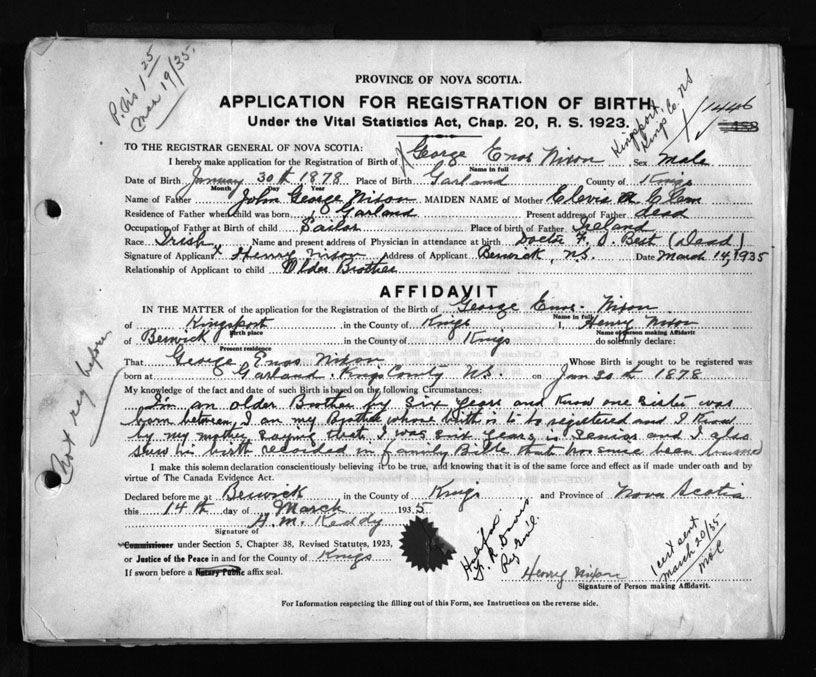 P.As 1 25
Mar 19/35.
PROVINCE OF NOVA SCOTIA.
APPLICATION FOR REGISTRATION OF BIRTH,
Under the Vital Statistics Act, Chap. 20, R. S. 1923.
Kingsport,
Kings Co. NS
1446
TO THE REGISTRAR GENERAL OF NOVA SCOTIA:
I hereby make application for the Registration of Birth of George Enos Nixon Sex Male
Name in full
Date of Birth January 30th 1878 Place of Birth Garland County of Kings
Month Day Year
Name of Father John George Nixon MAIDEN NAME of Mother
Residence of Father when child was born Garland Present address of Father dead
Occupation of Father at Birth of child Sailor Place of birth of Father
Race Irish Name and present address of Physician in attendance at birth Doctor F. J. Best (Dead)
Signature of Applicant x Henry Nixon Address of Applicant Berwick, N.S. Date March 14, 1935
Relationship of Applicant to child Older Brother
AFFIDAVIT
IN THE MATTER of the application for the Registration of the Birth of George Enos Nixon
Name in full
of Kingsport in the County of Kings I, Henry Nixon
Birth place Name of person making Affidavit
of Berwick in the County of Kings do solemnly declare:
Present residence
That George Enos Nixon Whose Birth is sought to be registered was
born at Garland, Kings County N.S. on Jan 30th 1878
My knowledge of the fact and date of such Birth is based on the following Circumstances:
I'm an older Brother by six years and know one sister was
born between, I am my Brother whose birth is to be registered and I know
by my mother saying that I was six years is Senior and I also
saw his birth recorded in family Bible that has since been
Not reg before
I make this solemn declaration conscientiously believing it to be true, and knowing that it is of the same force and effect as if made under oath and by
virtue of The Canada Evidence Act.
Declared before me at Berwick in the County of Kings and Province of Nova Scotia
this 14th day of March 1935
A.M. Keddy
Signature of
Commissioner under Section 5, Chapter 38, Revised Statutes, 1923,
or Justice of the Peace in and for the County of Kings
If sworn before a Notary Public affix seal.
Halifax
Henry Nixon
Signature of Person making Affidavit.
1 cert sent
March 20/35
For Information respecting the filling out of this Form, see Instructions on the reverse side.